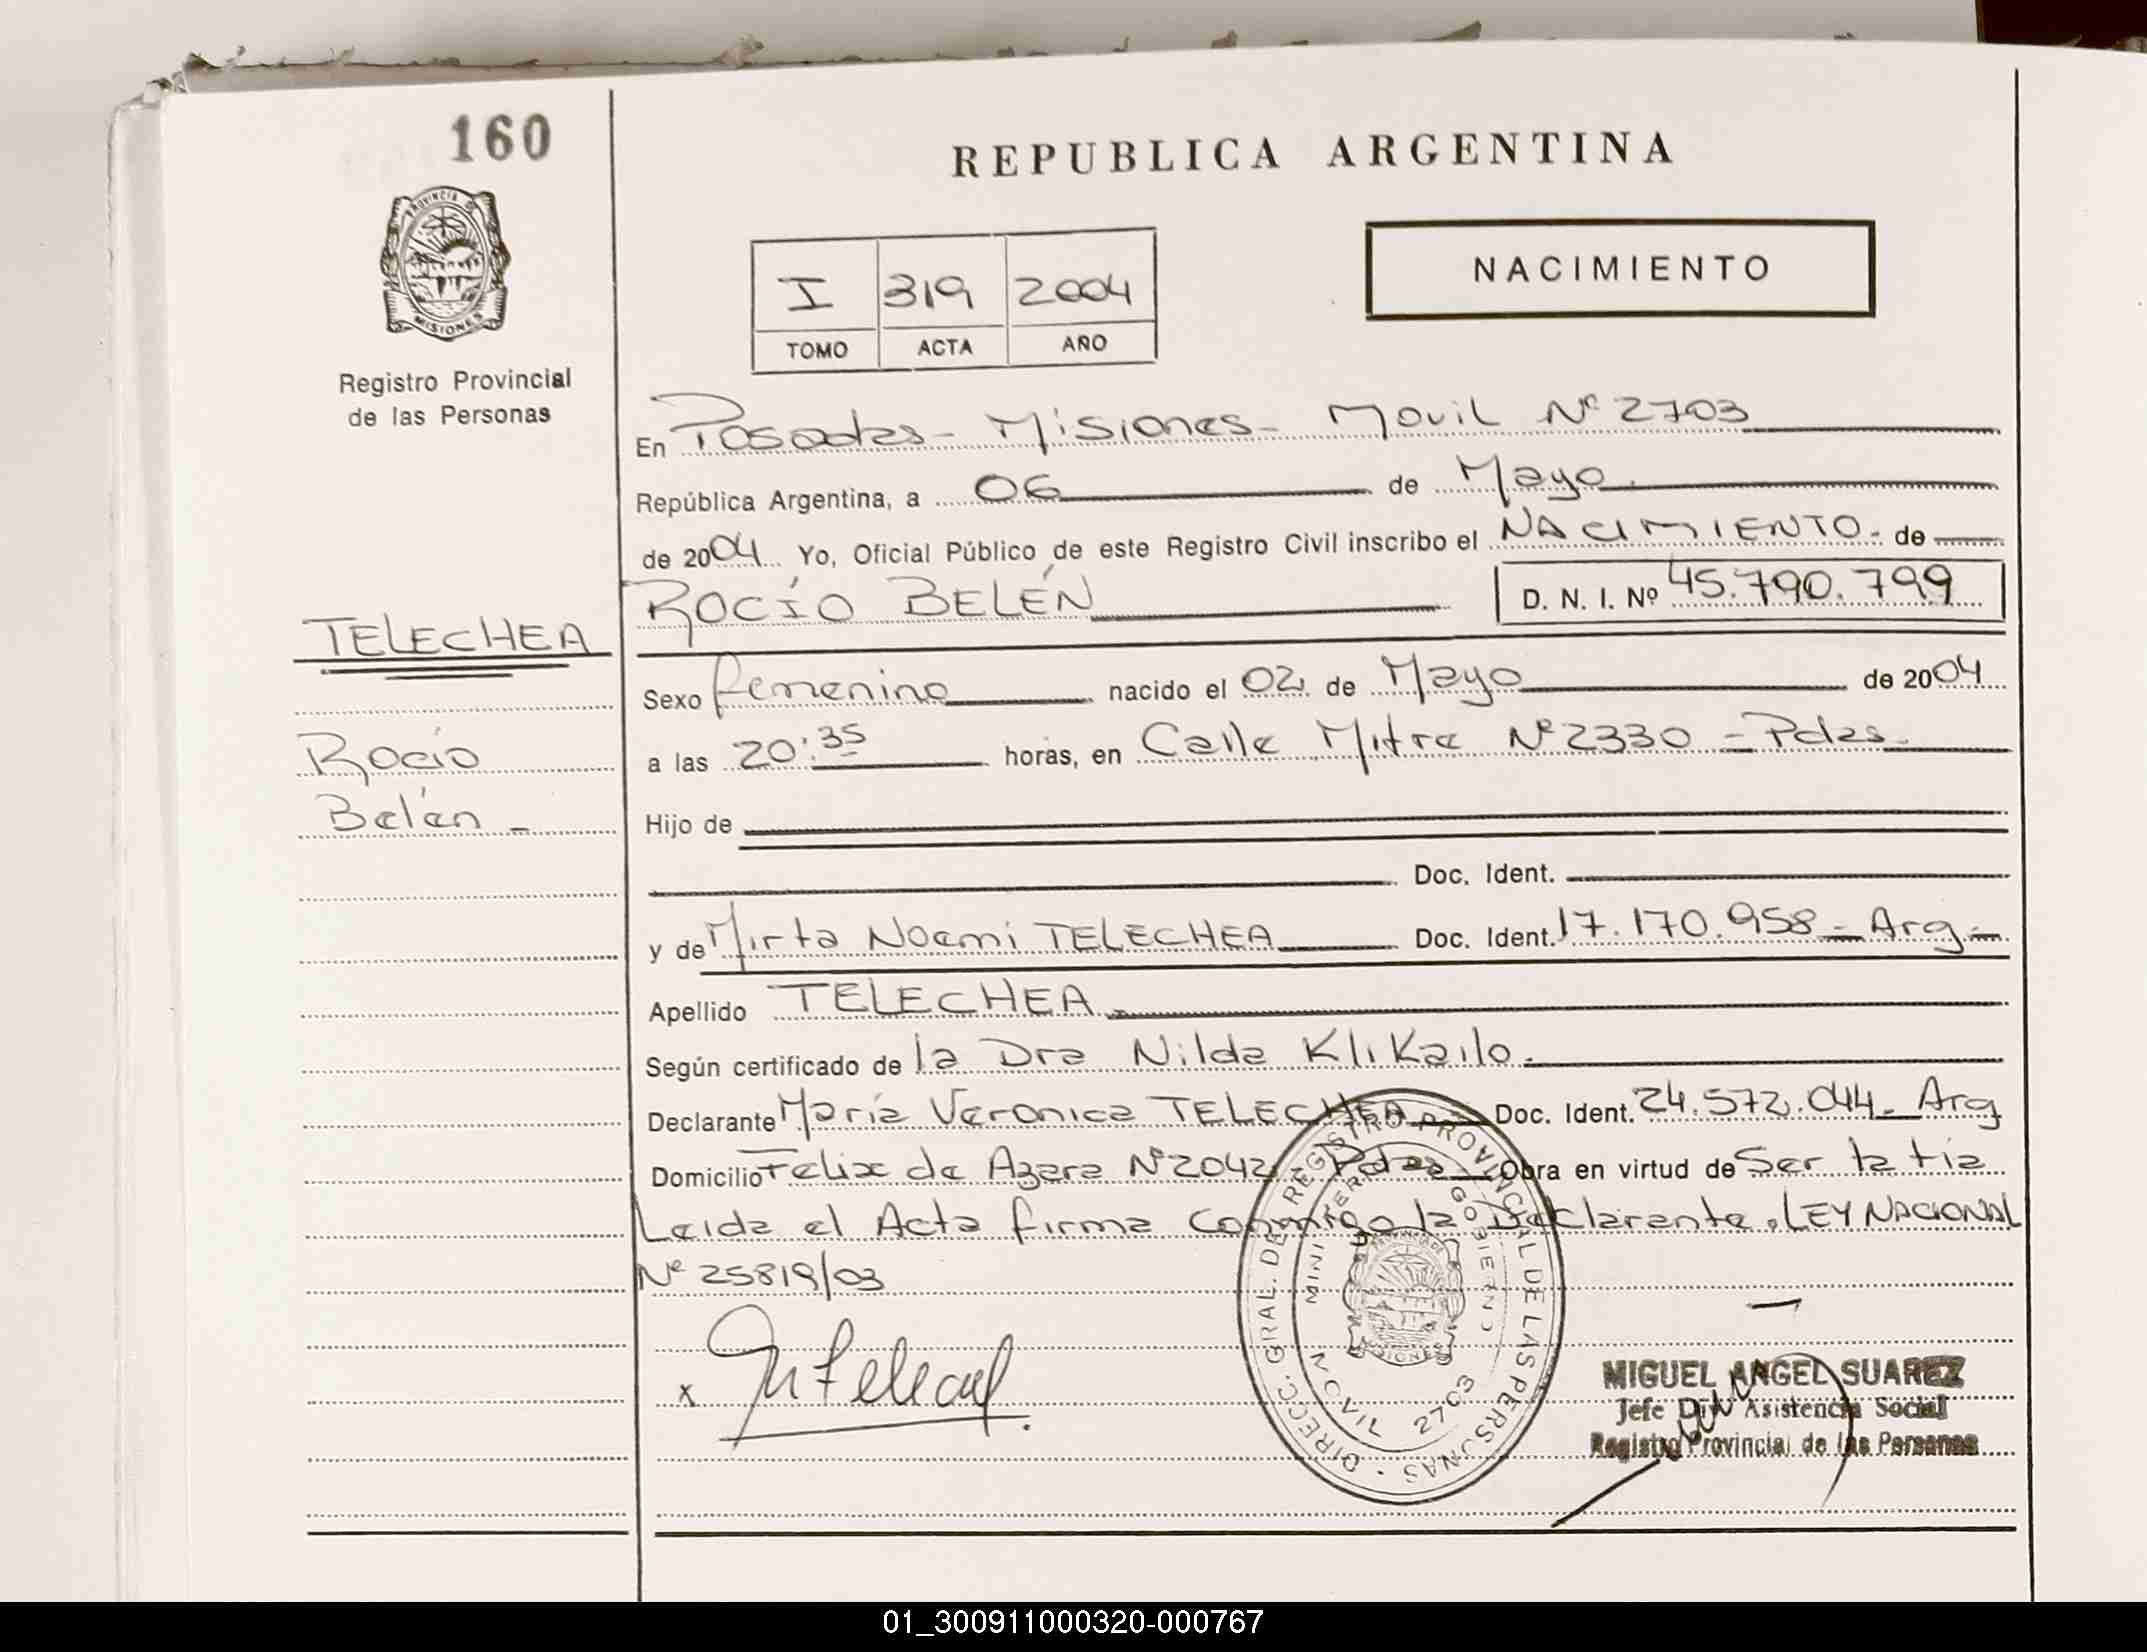 160
REPUBLICA ARGENTINA
PROVINCIA DE MISIONES
Registro Provincial
de las Personas
I 319 2004
TOMO ACTA AÑO
NACIMIENTO
En Posadas - Misiones - Movil Nº 2703
República Argentina, a 06 de Mayo.
de 2004 Yo, Oficial Público de este Registro Civil inscribo el NACIMIENTO - de
ROCÍO BELÉN D. N. I. Nº 45.790.799
TELECHEA
Sexo femenino nacido el 02 de Mayo de 2004
Rocío
a las 20:35 horas, en Calle Mitre Nº 2330 - Pdas -
Belén -
Hijo de
Doc. Ident.
y de Mirta Noemi TELECHEA Doc. Ident. 17.170.958 - Arg -
Apellido TELECHEA
Según certificado de la Dra Nilda Klikailo.
Declarante María Veronica TELECHEA Doc. Ident. 24.572.044 - Arg
Domicilio Felix de Azara Nº 2042 - Pdas Obra en virtud de Ser la tia
Leida el Acta firma conmigo la Declarante. LEY NACIONAL
Nº 25819/03
DIRECC. GRAL. DE REGISTRO PROVINCIAL DE LAS PERSONAS
GOBIERNO
MOVIL 2703
MISIONES
x
MIGUEL ANGEL SUAREZ
Jefe Asistencia Social
Registro Provincial de las Personas
01_300911000320-000767